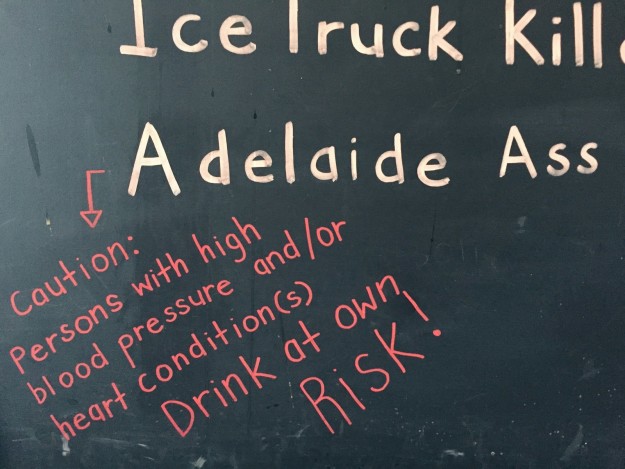 Ice Truck Kill
Adelaide Ass
Caution:
Persons with high
blood pressure and/or
heart condition(s)
Drink at own
RiSK!